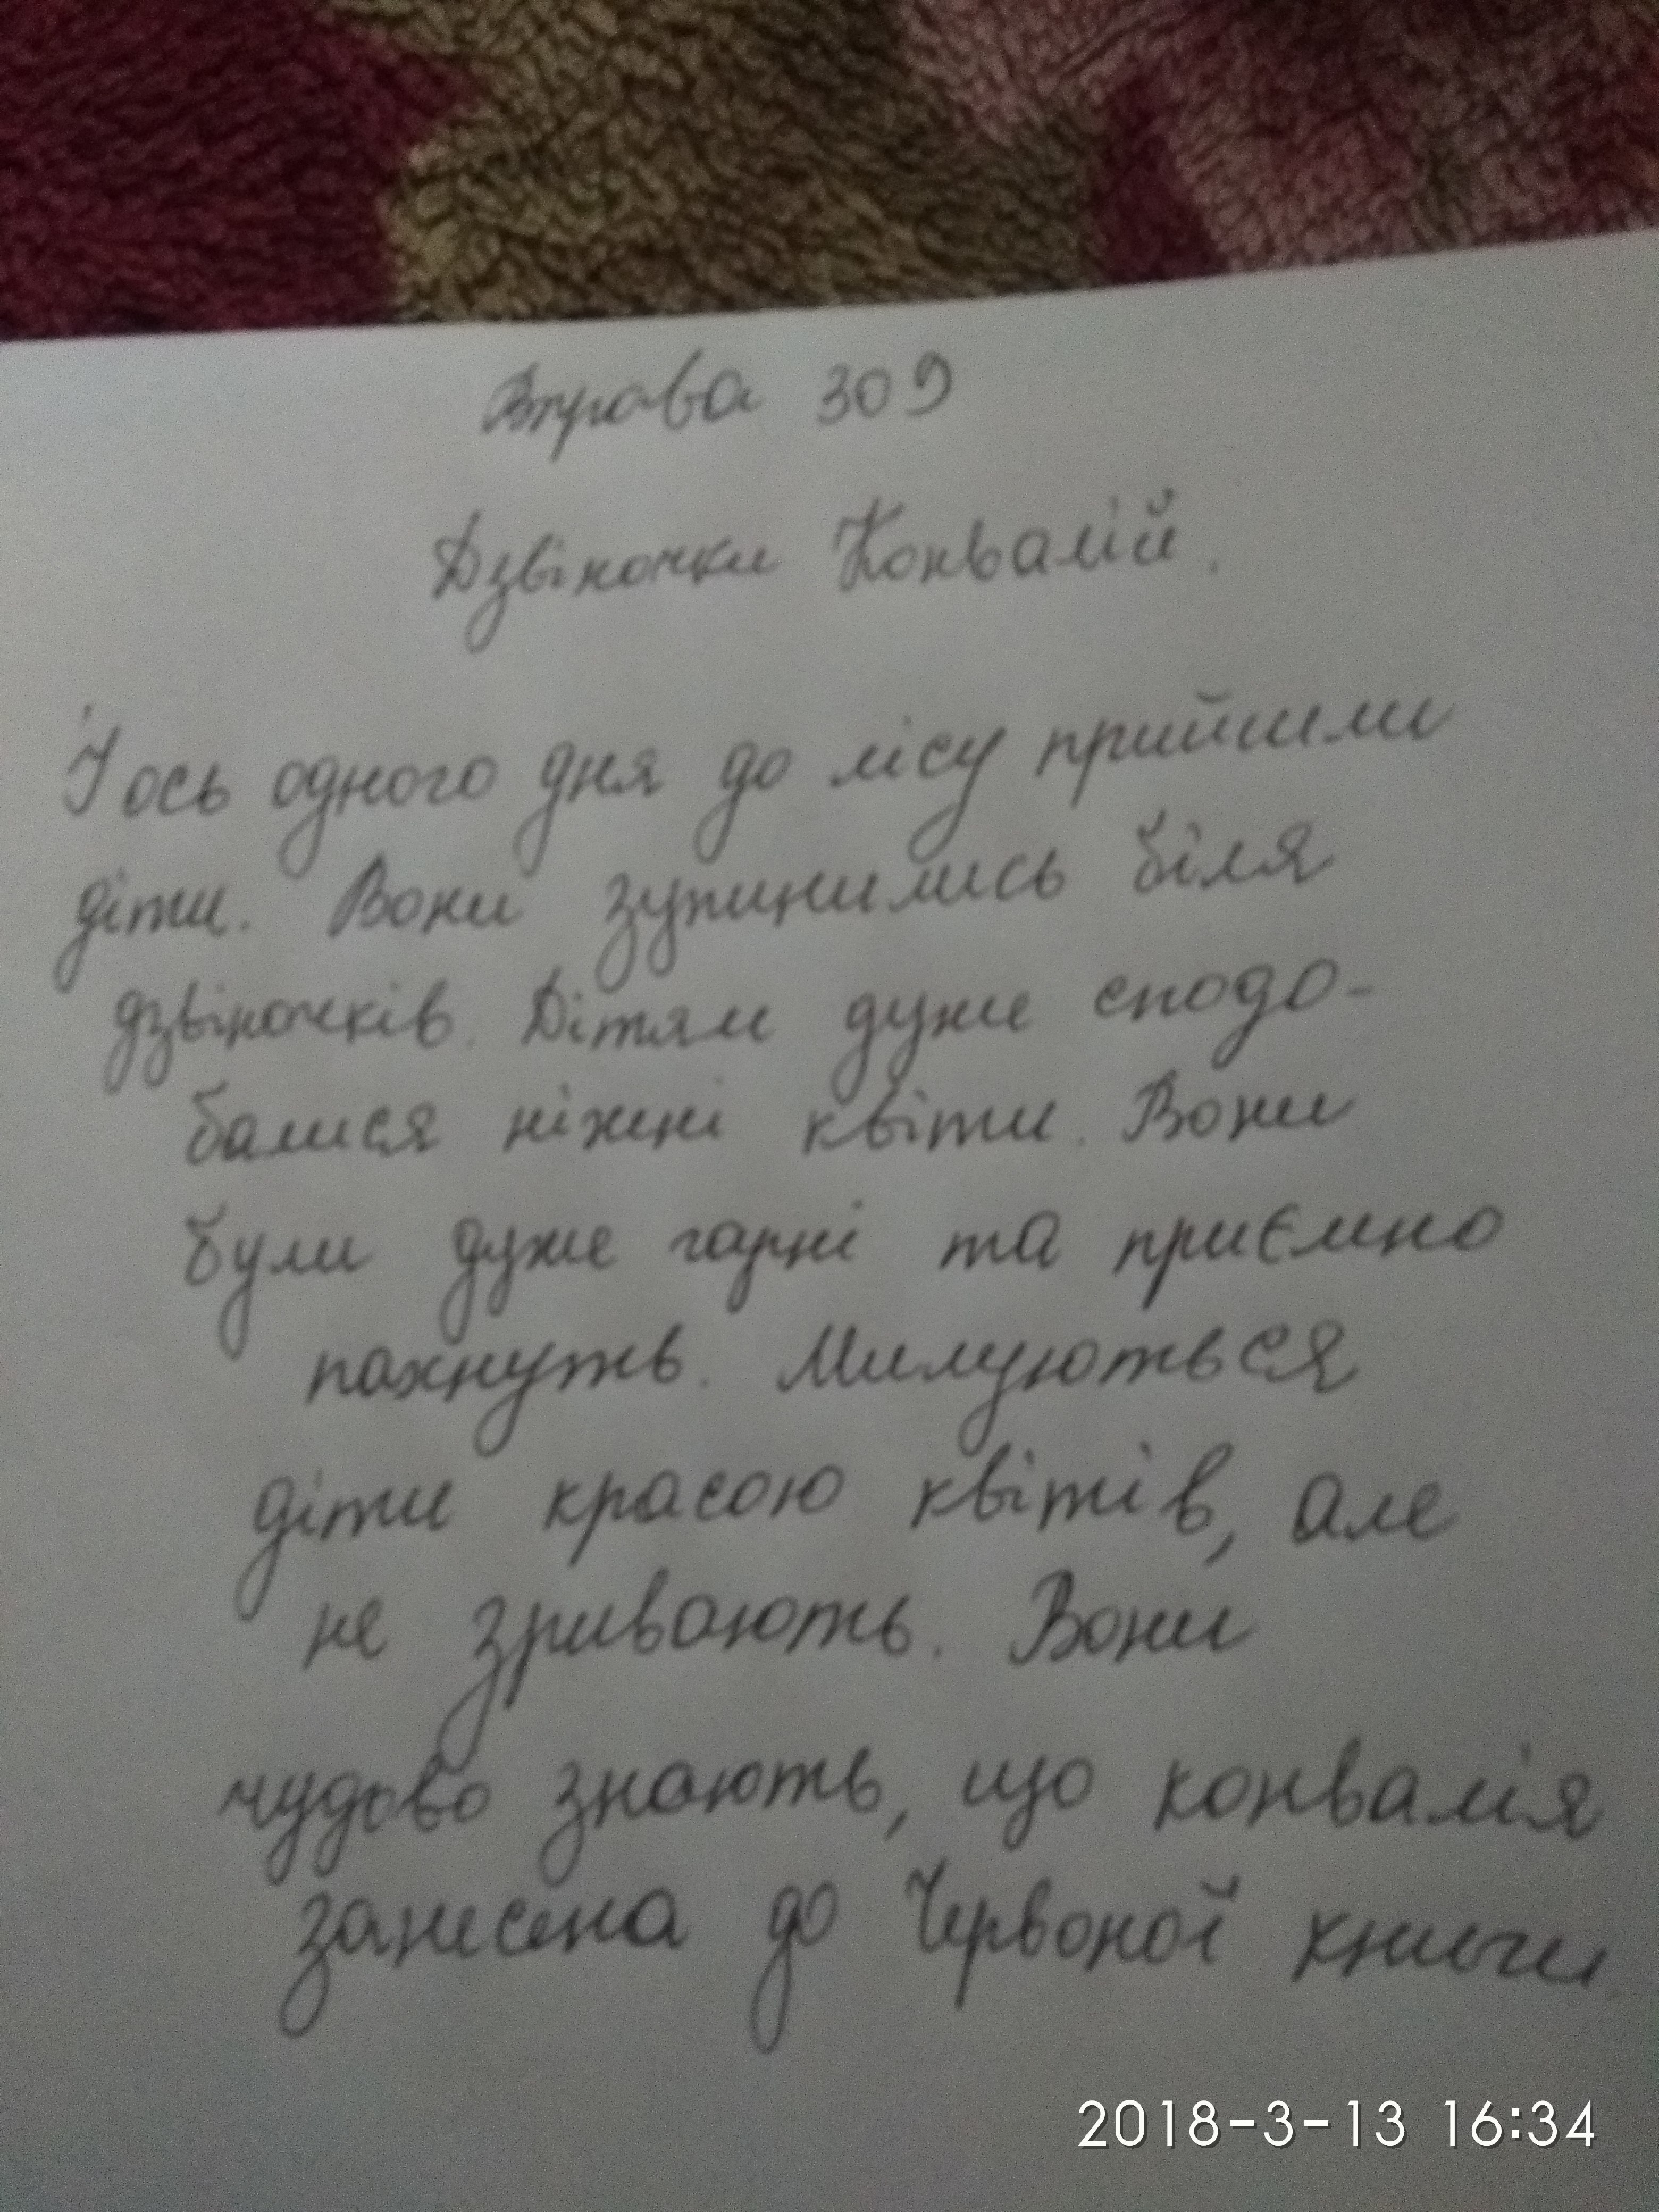 Вправа 309
Дзвіночки Конвалій.
І ось одного дня до лісу прийшли
діти. Вони зупинились біля
дзвіночків. Дітям дуже сподо-
балися ніжні квіти. Вони
були дуже гарні та приємно
пахнуть. Милуються
діти красою квітів, але
не зривають. Вони
чудово знають, що конвалія
занесена до Червоної книги.
2018-3-13 16:34